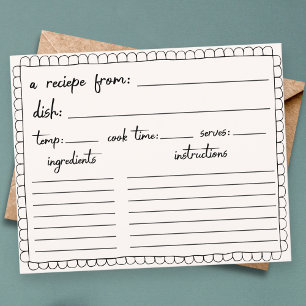 a reciepe from:
dish:
temp: cook time: serves:
ingredients instructions